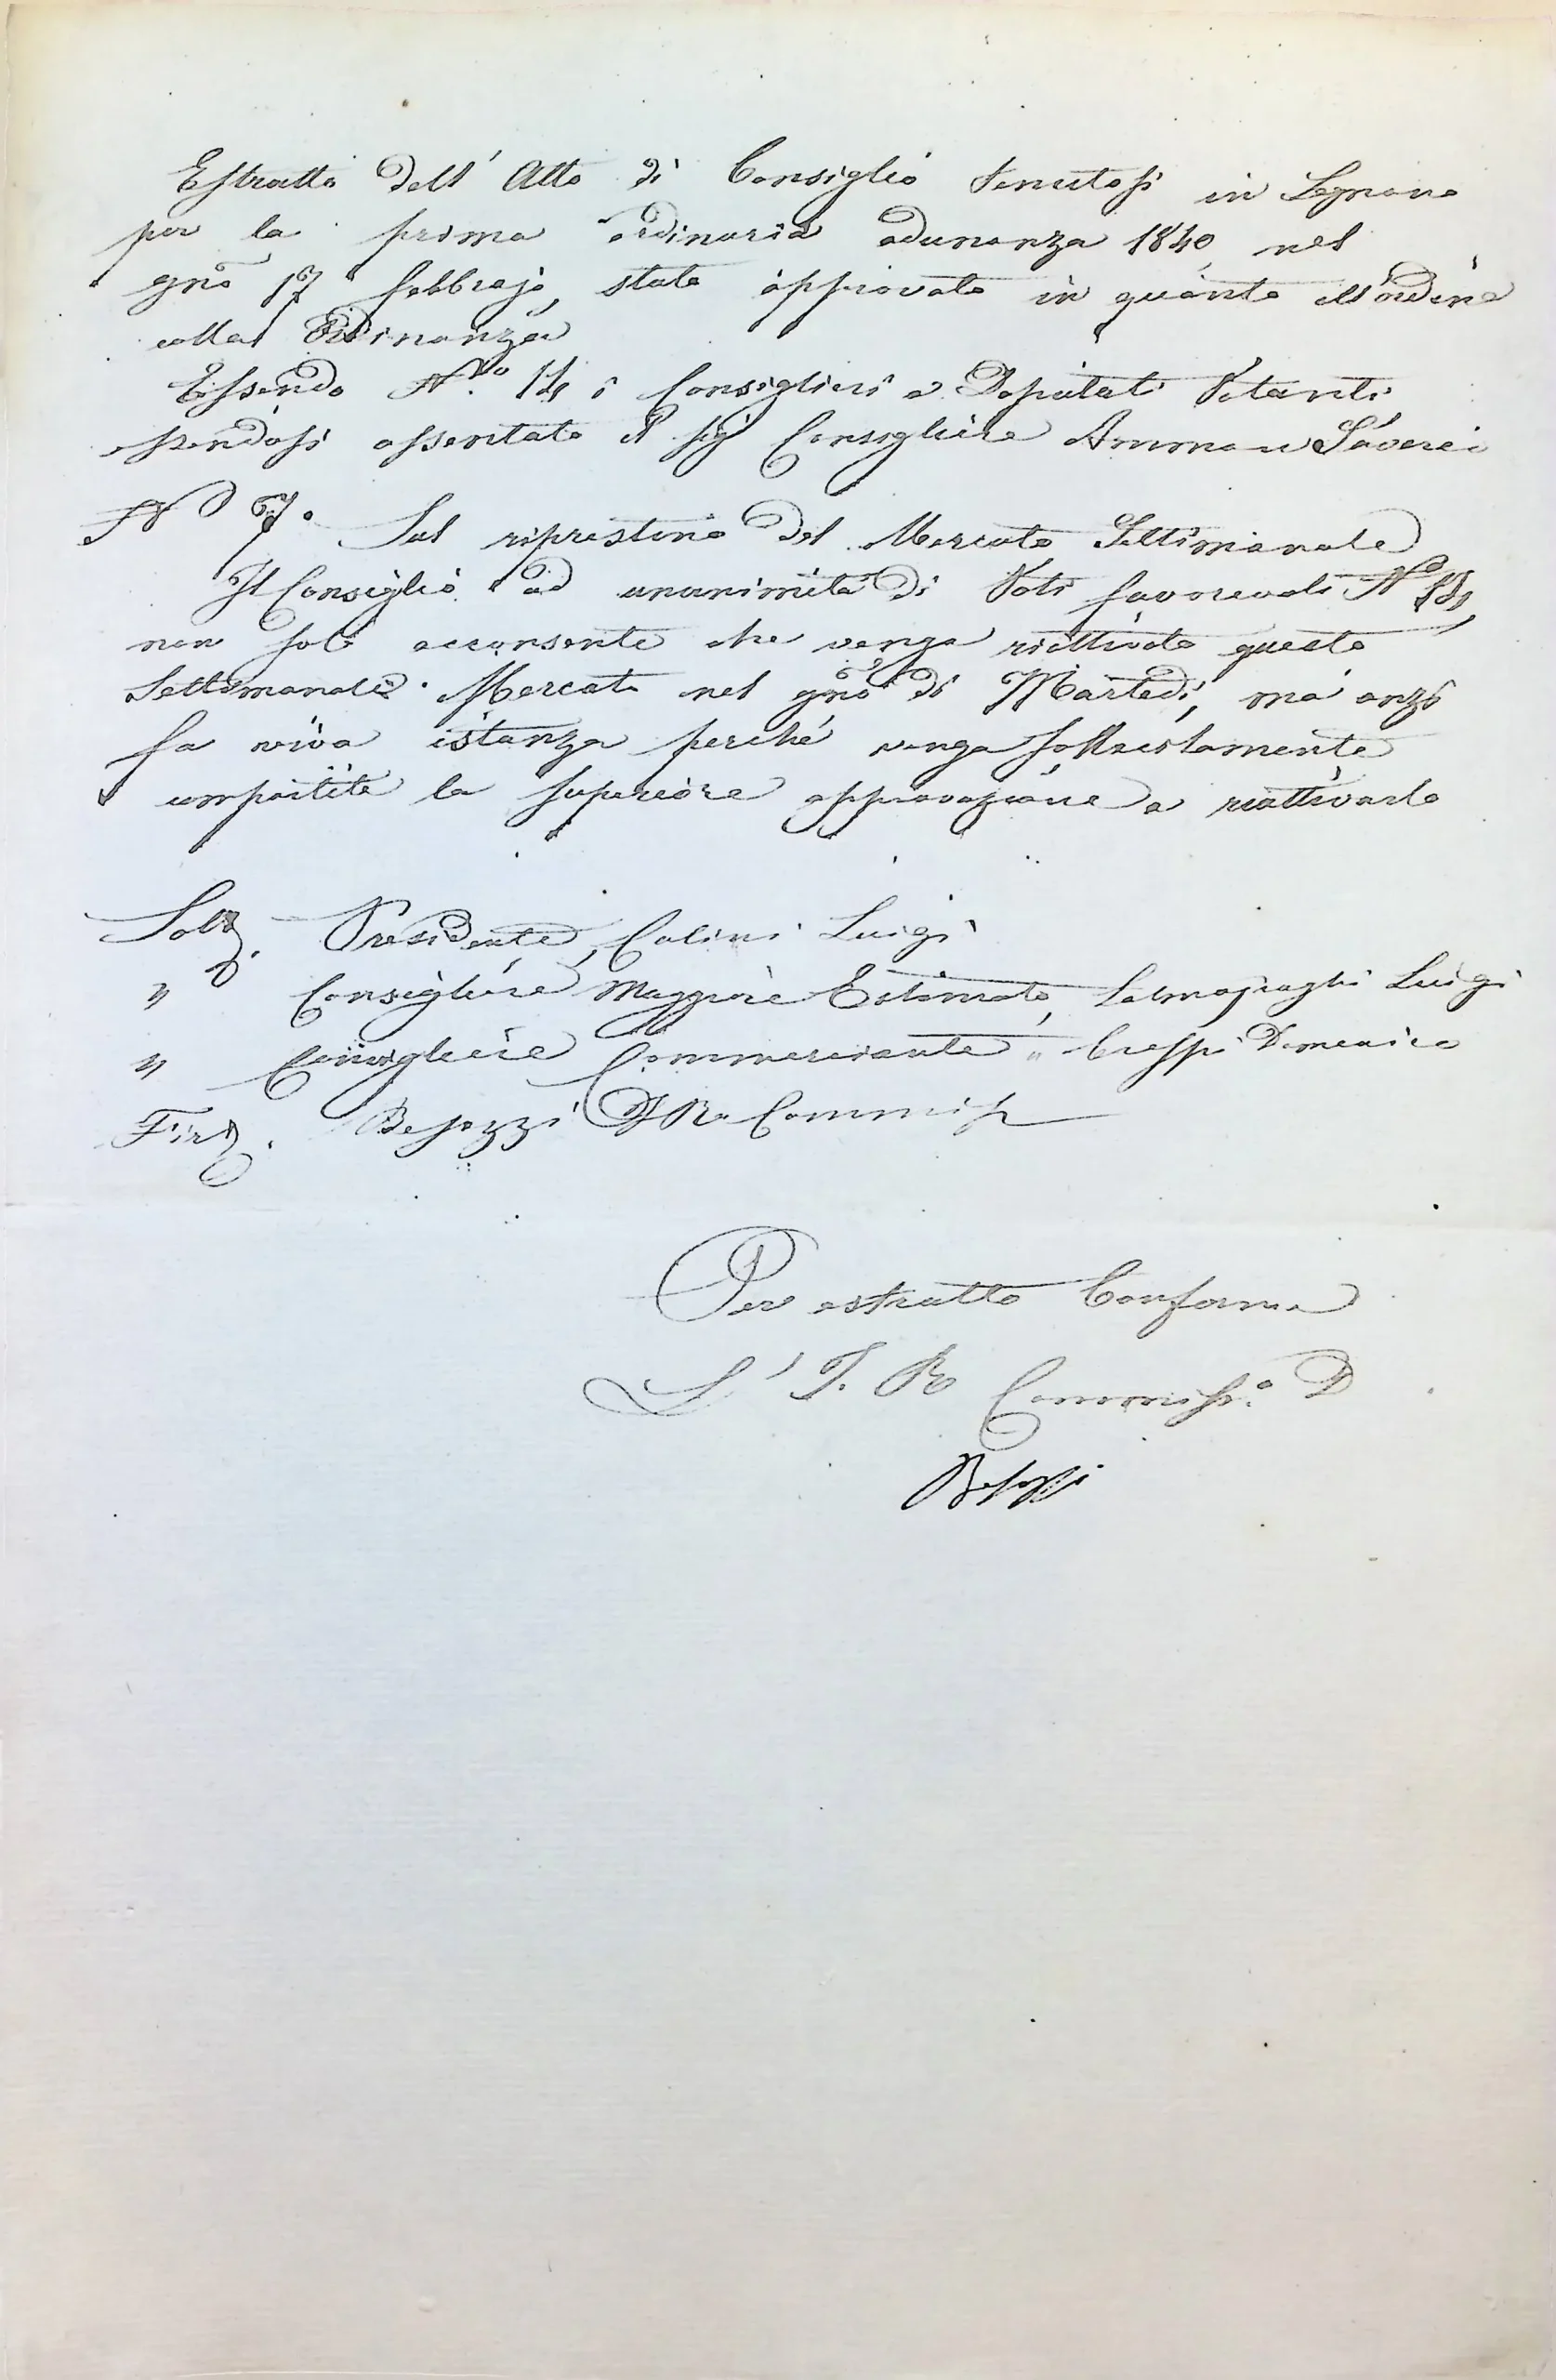 Estratto dell' Atto di Consiglio tenutosi in Legnano
per la prima ordinaria adunanza 1840, nel
gno 17 febbrajo, stato approvato in quanto all'ordine
colla
Essendo N.ro 14 i Consiglieri e Deputati Votanti
essendosi assentato il Sig Consigliere Amman Saverio
N 7. Sul ripristino del Mercato Settimanale
Il Consiglio ad unanimità di Voti favorevoli N 14,
non solo acconsente che venga riattivato questo
Settimanale Mercato nel gno di Martedì, ma anzi
fa viva istanza perchè venga sollecitamente
compartita la superiore approvazione a riattivarlo
Sott. Presidente, Colini Luigi
" Consigliere Maggiore Estimato, Salmojraghi Luigi
" Consigliere Commerciante " Crespi Domenico
Fir. Besozzi I R Commiss
Per estratto Conforme
L' I. R Commiss.o D
Besozzi